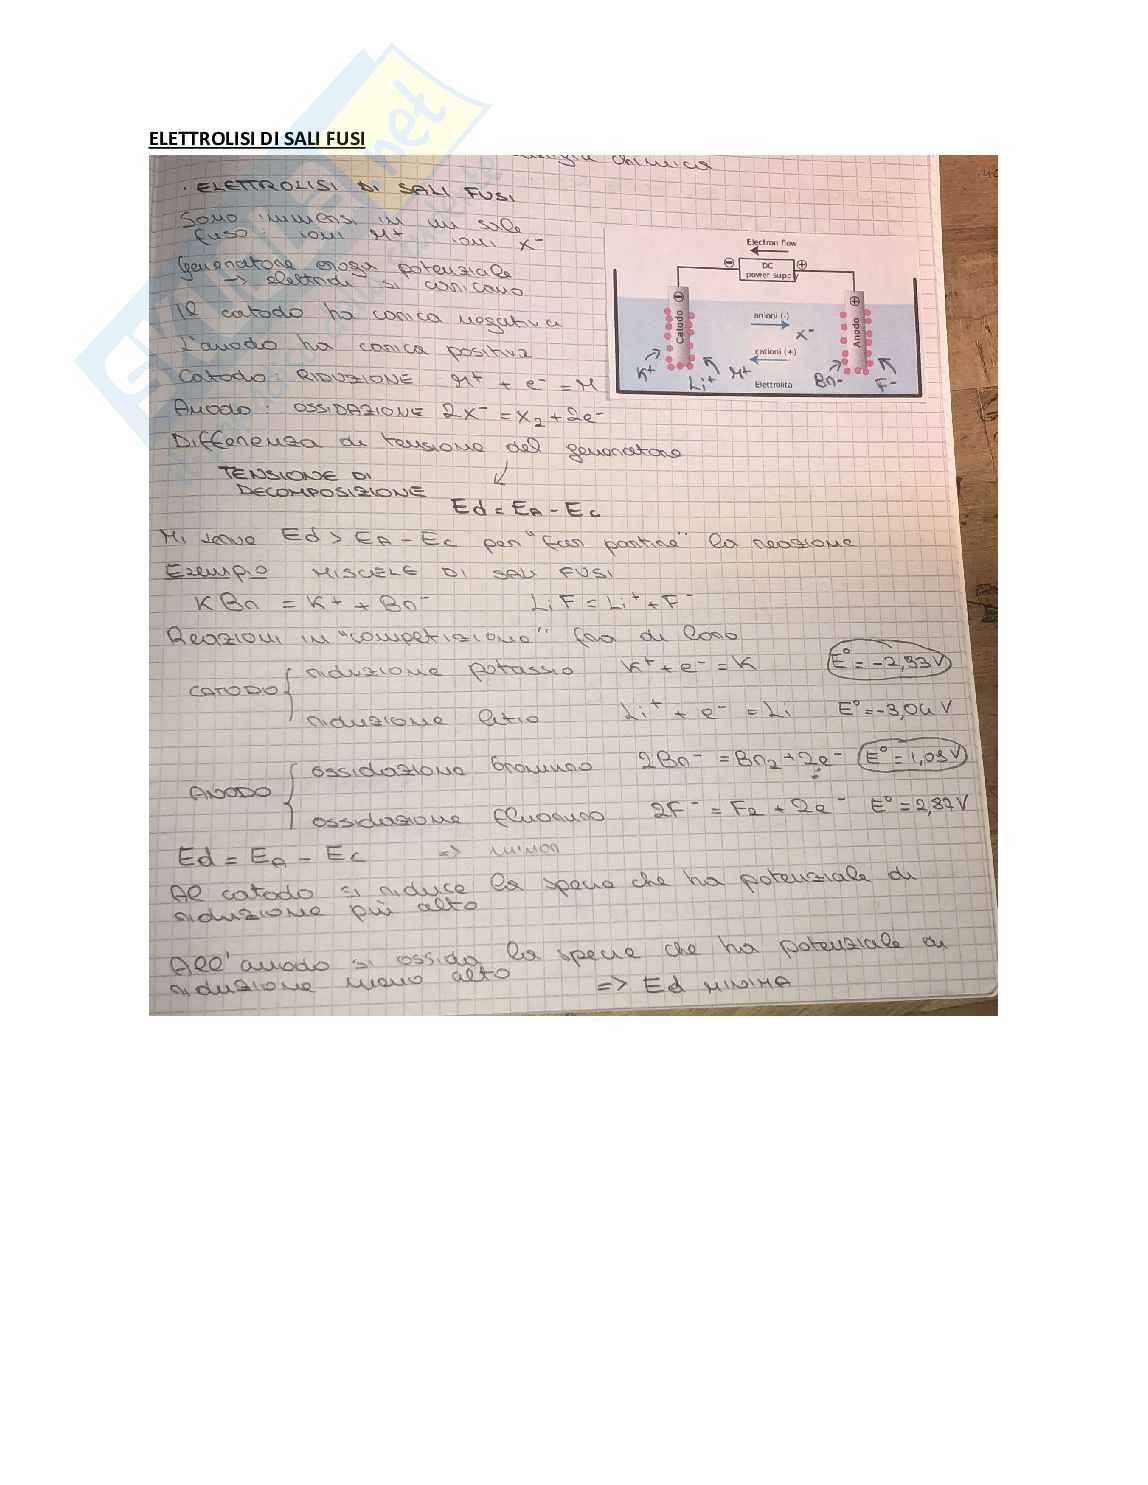 ELETTROLISI DI SALI FUSI
chimica
· ELETTROLISI DI SALI FUSI
Sono immersi in un sale
fuso: ioni M+ ioni X-
Generatore eroga potenziale
-> elettrodi si caricano
Il catodo ha carica negativa
L'anodo ha carica positiva
Catodo: RIDUZIONE M+ + e- = M
Anodo: OSSIDAZIONE 2X- = X2 + 2e-
Differenza di tensione del generatore
TENSIONE DI
DECOMPOSIZIONE
Ed = EA - EC
Electron flow
DC
power supply
Catodo
Anodo
anioni (-)
X-
cationi (+)
K+
Li+
M+
Elettrolita
Br-
F-
Mi serve Ed > EA - EC per "far partire" la reazione
Esempio MISCELE DI SALI FUSI
KBr = K+ + Br- LiF = Li+ + F-
Reazioni in "competizione" fra di loro
CATODO
riduzione potassio K+ + e- = K E° = -2,93V
riduzione litio Li+ + e- = Li E° = -3,04V
ANODO
ossidazione bromuro 2Br- = Br2 + 2e- E° = 1,09V
ossidazione fluoruro 2F- = F2 + 2e- E° = 2,87V
Ed = EA - EC =>
Al catodo si riduce la specie che ha potenziale di
riduzione più alto
All'anodo si ossida la specie che ha potenziale di
riduzione meno alto => Ed MINIMA